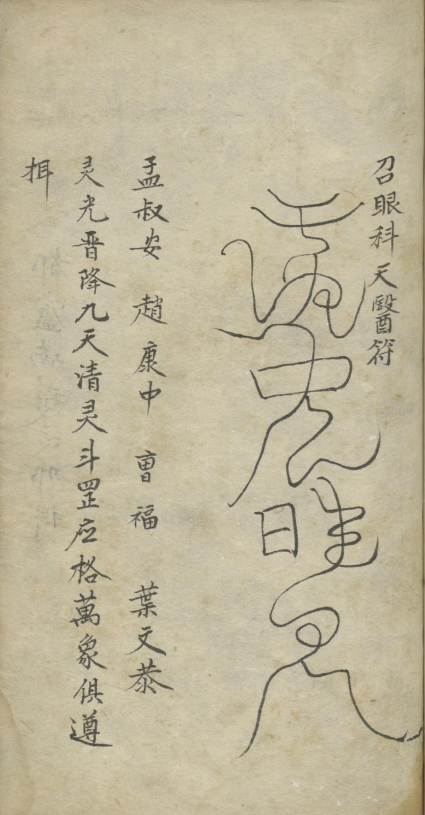 召眼科天醫符
孟叔安 趙康中 曹福 葉文恭
灵光晋降九天清灵斗罡应格萬象俱遵
揖